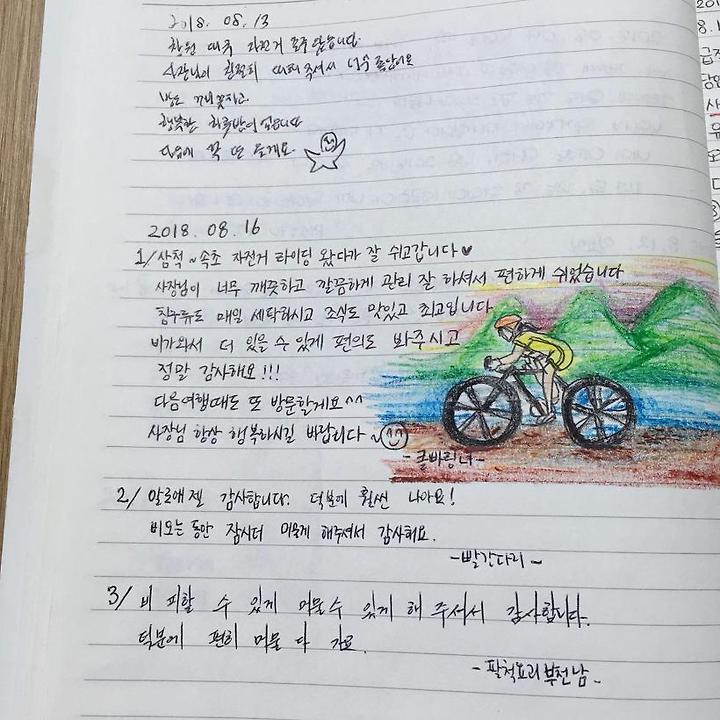 2018. 08. 13
창원
사장님이 친절히 너무 좋았어요
방도 깨끗하고.
행복한
다음에 꼭 또 올게요
2018. 08. 16
1/ 삼척~속초 자전거 라이딩 왔다가 잘 쉬고갑니다♥
사장님이 너무 깨끗하고 깔끔하게 관리 잘 하셔서 편하게 쉬었습니다
침구류도 매일 세탁하시고 조식도 맛있고 최고입니다
비가와서 더 있을 수 있게 편의도 봐주시고
정말 감사해요!!!
다음여행때도 또 방문할게요^^
사장님 항상 행복하시길 바랍니다~
2/ 알로에젤 감사합니다. 덕분에 훨씬 나아요!
비오는 동안 잠시더 머물게 해주셔서 감사해요.
-빨간다리-
3/ 비 피할 수 있게 머물수 있게 해 주셔서 감사합니다.
덕분에 편히 머물 다 가요.
부천남-